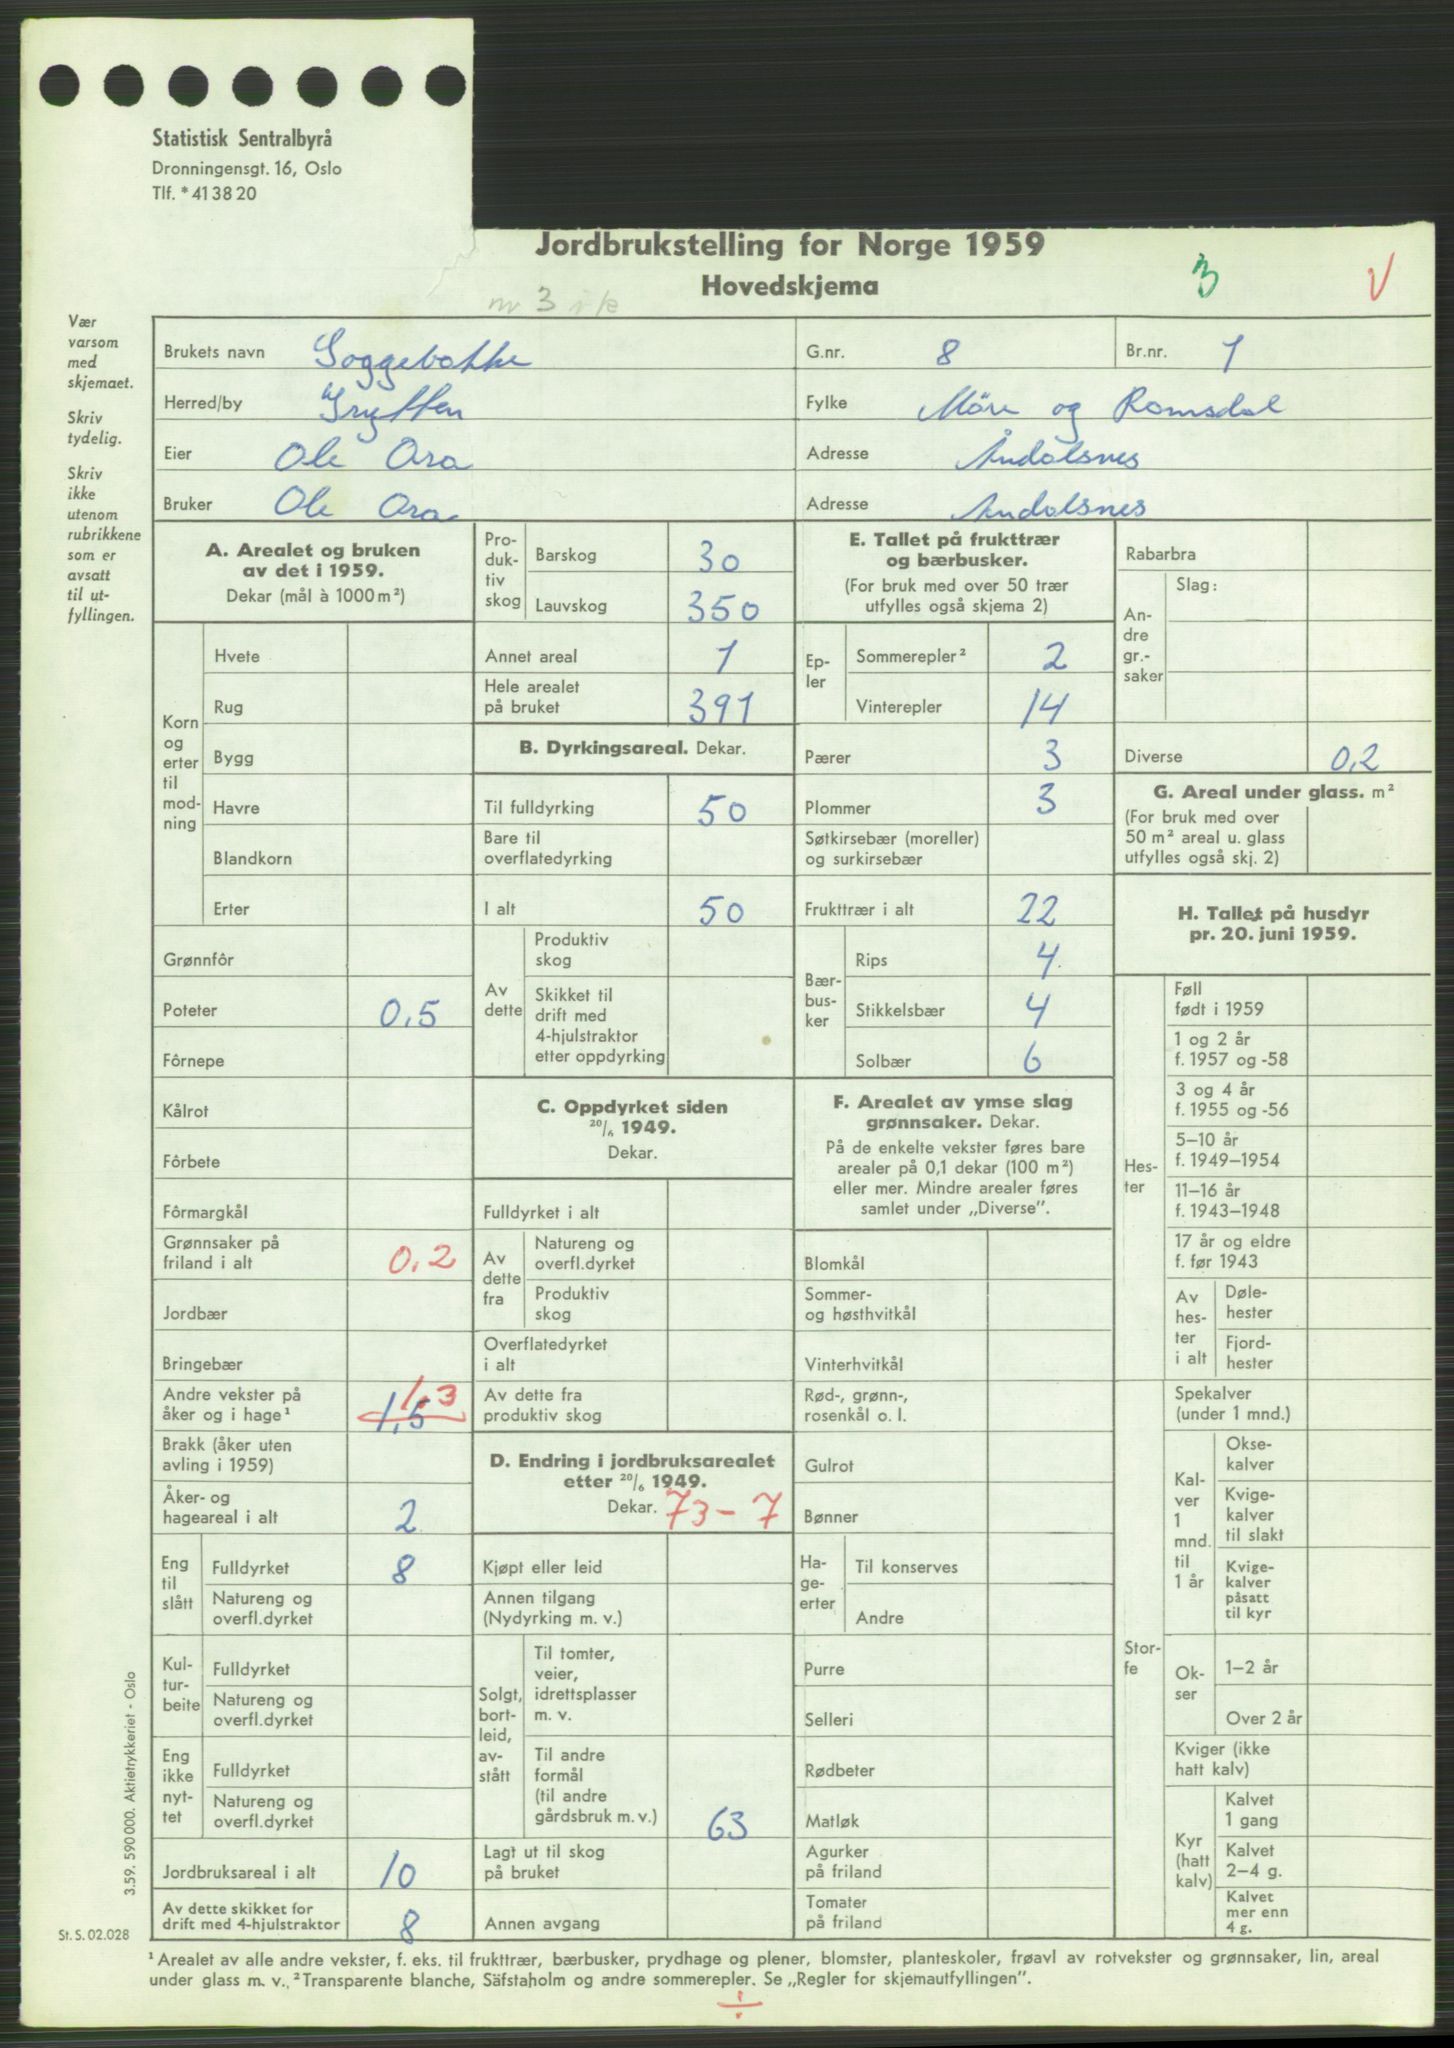 Statistisk Sentralbyrå
Dronningensgt. 16, Oslo
Tlf. *41 38 20
Jordbrukstelling for Norge 1959
Hovedskjema
3
V
nr 3 i k
Vær
varsom
med
skjemaet.
Skriv
tydelig.
Skriv
ikke
utenom
rubrikkene
som er
avsatt
til ut-
fyllingen.
Brukets navn Soggebakke
G.nr. 8
Br.nr. 1
Herred/by Grytten
Fylke Möre og Romsdal
Eier Ole Ora
Adresse Åndalsnes
Bruker Ole Ora
Adresse Åndalsnes
A. Arealet og bruken
av det i 1959.
Dekar (mål à 1000 m²)
Korn
og
erter
til
mod-
ning
Hvete
Rug
Bygg
Havre
Blandkorn
Erter
Grønnfôr
Poteter 0,5
Fôrnepe
Kålrot
Fôrbete
Fôrmargkål
Grønnsaker på
friland i alt 0,2
Jordbær
Bringebær
Andre vekster på
åker og i hage¹ 1,5 1,3
Brakk (åker uten
avling i 1959)
Åker- og
hageareal i alt 2
Eng
til
slått
Fulldyrket 8
Natureng og
overfl.dyrket
Kul-
tur-
beite
Fulldyrket
Natureng og
overfl.dyrket
Eng
ikke
nyt-
tet
Fulldyrket
Natureng og
overfl.dyrket
Jordbruksareal i alt 10
Av dette skikket for
drift med 4-hjulstraktor 8
Pro-
duk-
tiv
skog
Barskog 30
Lauvskog 350
Annet areal 1
Hele arealet
på bruket 391
B. Dyrkingsareal. Dekar.
Til fulldyrking 50
Bare til
overflatedyrking
I alt 50
Av
dette
Produktiv
skog
Skikket til
drift med
4-hjulstraktor
etter oppdyrking
C. Oppdyrket siden
20/6 1949.
Dekar.
Fulldyrket i alt
Av
dette
fra
Natureng og
overfl.dyrket
Produktiv
skog
Overflatedyrket
i alt
Av dette fra
produktiv skog
D. Endring i jordbruksarealet
etter 20/6 1949.
Dekar. 73-7
Kjøpt eller leid
Annen tilgang
(Nydyrking m. v.)
Solgt,
bort-
leid,
av-
stått
Til tomter,
veier,
idrettsplasser
m. v.
Til andre
formål
(til andre
gårdsbruk m. v.) 63
Lagt ut til skog
på bruket
Annen avgang
E. Tallet på frukttrær
og bærbusker.
(For bruk med over 50 trær
utfylles også skjema 2)
Ep-
ler
Sommerepler² 2
Vinterepler 14
Pærer 3
Plommer 3
Søtkirsebær (moreller)
og surkirsebær
Frukttrær i alt 22
Bær-
bus-
ker
Rips 4
Stikkelsbær 4
Solbær 6
F. Arealet av ymse slag
grønnsaker. Dekar.
På de enkelte vekster føres bare
arealer på 0,1 dekar (100 m²)
eller mer. Mindre arealer føres
samlet under „Diverse”.
Blomkål
Sommer-
og høsthvitkål
Vinterhvitkål
Rød-, grønn-,
rosenkål o. l.
Gulrot
Bønner
Ha-
ge-
erter
Til konserves
Andre
Purre
Selleri
Rødbeter
Matløk
Agurker
på friland
Tomater
på friland
Rabarbra
An-
dre
gr.-
saker
Slag:
Diverse 0,2
G. Areal under glass. m²
(For bruk med over
50 m² areal u. glass
utfylles også skj. 2)
H. Tallet på husdyr
pr. 20. juni 1959.
Hes-
ter
Føll
født i 1959
1 og 2 år
f. 1957 og -58
3 og 4 år
f. 1955 og -56
5–10 år
f. 1949–1954
11–16 år
f. 1943–1948
17 år og eldre
f. før 1943
Av
hes-
ter
i alt
Døle-
hester
Fjord-
hester
Stor-
fe
Spekalver
(under 1 mnd.)
Kal-
ver
1
mnd.
til
1 år
Okse-
kalver
Kvige-
kalver
til slakt
Kvige-
kalver
påsatt
til kyr
Ok-
ser
1–2 år
Over 2 år
Kviger (ikke
hatt kalv)
Kyr
(hatt
kalv)
Kalvet
1 gang
Kalvet
2–4 g.
Kalvet
mer enn
4 g.
3.59. 590 000. Aktietrykkeriet - Oslo
St. S. 02.028
¹ Arealet av alle andre vekster, f. eks. til frukttrær, bærbusker, prydhage og plener, blomster, planteskoler, frøavl av rotvekster og grønnsaker, lin, areal
under glass m. v. ² Transparente blanche, Säfstaholm og andre sommerepler. Se „Regler for skjemautfyllingen”.